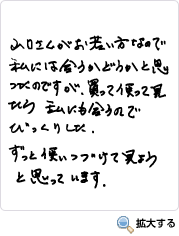 山口さんがお若い方なので
私には合うかどうかと思
ったのですが、買って使って見
たら 私にも合うので
びっくりした.
ずっと使いつづけて見よう
と思っています.
拡大する